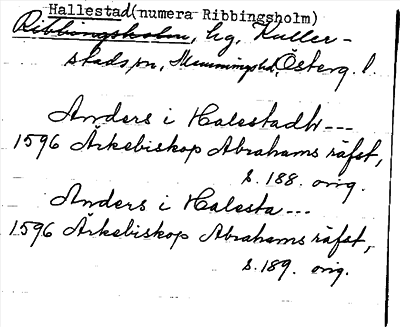 Hallestad(numera Ribbingsholm)
Ribbingsholm, hg, Kuller-
stads sn, Memmingshd, Österg. l.
Anders i Halestadh---
1596 Ärkebiskop Abrahams räfst,
s. 188. orig.
Anders i Halesta---
1596 Ärkebiskop Abrahams räfst,
s. 189. orig.